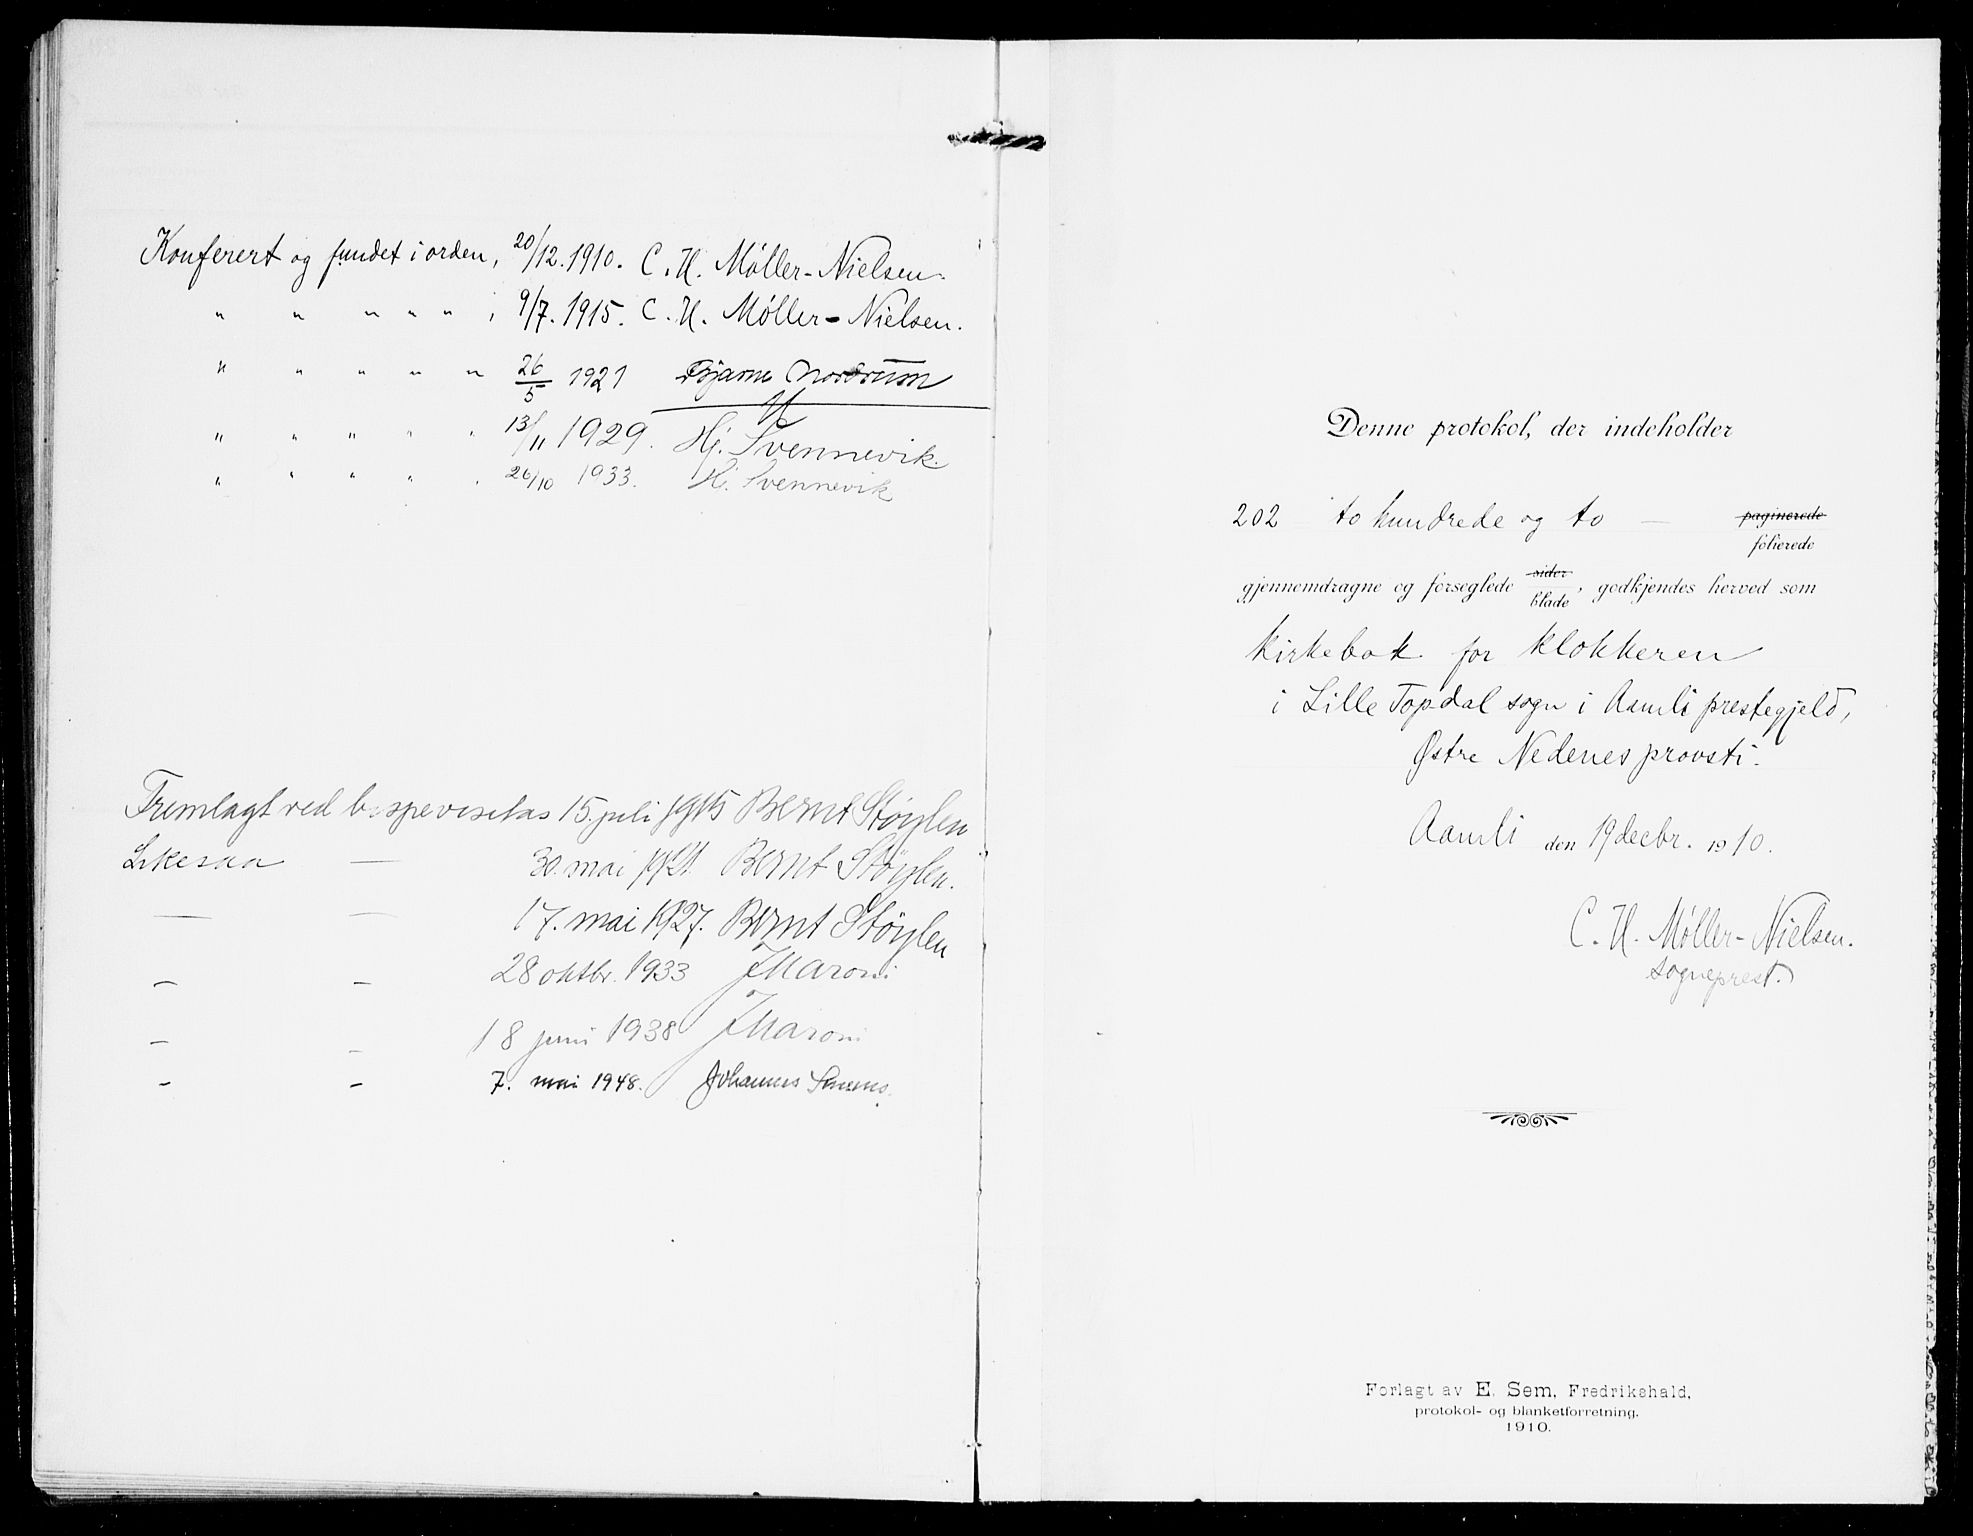 Konferert og fundet i orden, 20/12. 1910. C. H. Møller-Nielsen.
" " " " " , 9/7. 1915. C. H. Møller-Nielsen.
" " " " " 26/5 1921 Bjarne Nordrum
" " " " " 13/11 1929. Hj. Svennevik.
" " " " " 26/10 1933. Hj. Svennevik
Fremlagt ved bispevisitas 15. juli 1915 Bernt Støylen
Likesaa — 30. mai 1921. Bernt Støylen.
— — 17. mai 1927. Bernt Støylen
– – 28 oktbr. 1933 J Maroni
– – 18 juni 1938 J Maroni
– – 7. mai 1948. Johannes Smemo.
Denne protokol, der indeholder
202 to hundrede og to — paginerede
folierede
gjennemdragne og forseglede sider
blade, godkjendes herved som
kirkebok for klokkeren
i Lille Topdal sogn i Aamli prestegjeld,
Østre Nedenes provsti.
Aamli den 19 decbr. 1910.
C. H. Møller-Nielsen.
sogneprest.
Forlagt av E. Sem, Fredrikshald,
protokol- og blanketforretning.
1910.